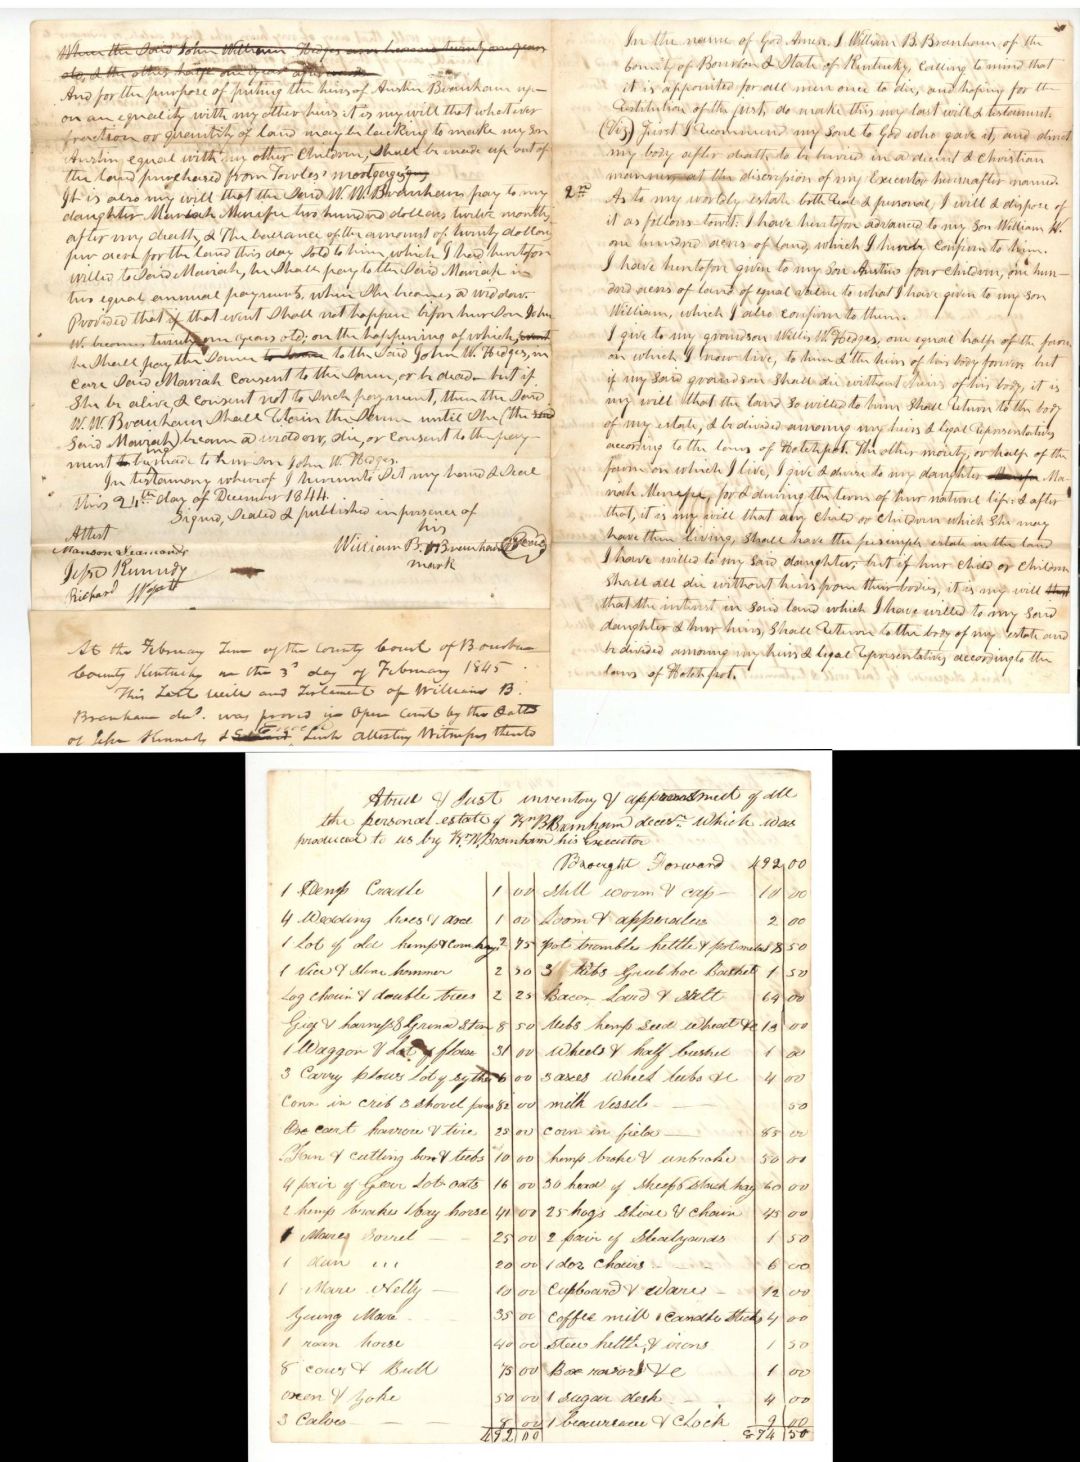 In the name of God Amen. I William B. Branham, of the
County of Bourbon & State of Kentucky, calling to mind that
it is appointed for all men once to die, and hoping for the
of the just, do make this my last will & testament.
(Viz) First I recommend my soul to God who gave it, and direct
my body after death, to be buried in a decent & Christian
manner at the discretion of my Executor hereinafter named.
2nd As to my worldly estate both real & personal, I will & dispose of
it as follows towit: I have heretofore advanced to my son William W.
one hundred acres of land, which I confirm to him.
I have heretofore given to my son Austins four children, one hun-
dred acres of land of equal value to what I have given to my son
William, which I also confirm to them.
I give to my grandson Willis W. Hedges, one equal half of the farm
on which I now live, to him & the heirs of his body forever but
if my said grandson shall die without heirs of his body, it is
my will that the land so willed to him shall return to the body
of my estate, & be divided among my heirs & legal representatives
according to the laws of Hotchpot. The other moiety, or half of the
farm on which I live, I give & devise to my daughter Ma-
riah Menefee, for & during the term of her natural life: & after
that, it is my will that any child or children which she may
have then living, shall have the feesimple estate in the land
I have willed to my said daughter, but if her child or children
shall all die without heirs from their bodies, it is my will
that the interest in said land which I have willed to my said
daughter & her heirs, shall return to the body of my estate and
be divided among my heirs & legal representatives according to the
laws of Hotchpot.
When the said John William Hedges becomes twenty one years
old, & the other half one year afterwards
And for the purpose of puting the heirs of Austin Branham up-
on an equality with my other heirs it is my will that whatever
fraction or quantity of land may be lacking to make my son
Austin equal with my other children, shall be made up out of
the land purchased from Towles' mortgage
It is also my will that the said W. W. Branham pay to my
daughter Mariah Menefee two hundred dollars twelve months
after my death, & the ballance of the amount of twenty dollars
per acre for the land this day sold to him, which I had heretofore
willed to said Mariah, he shall pay to the said Mariah in
two equal annual payments, when she becomes a widow.
Provided that if that event shall not happen before her son John
W. becomes twenty one years old; on the happening of which,
he shall pay the same to the said John W. Hedges, in
case said Mariah consent to the same, or be dead - but if
she be alive, & consent not to such payment, then the said
W. W. Branham shall retain the same until she (the
said Mariah) became a widow, die, or consent to the pay-
ment being made to her son John W. Hedges.
In testamony whereof I hereunto set my hand & seal
this 24th day of December 1844.
Signed, sealed & published in presence of
Attest
his
William B. Branham
mark
Jesse Kennedy
Richard
At the February Term of the County Court of Bourbon
County Kentucky on the 3d day of February 1845
This Last will and Testament of William B.
Branham decd. was proved in Open Court by the Oath
of Jesse Kennedy & attesting Witnesses thereto
A true & Just inventory & appraisment of all
the personal estate of Wm B Barnham decesd. which was
produced to us by Wm W Branham his Executor
Brought Forward 492 00
1 Hemp Cradle 1 00
4 Weading hoes & axe 1 00
1 Lot of old hemp & corn 2 75
1 Vice & Stone hammer 2 50
Log chain & double trees 2 25
Gig & harness & Grind Stone 8 50
1 Waggon & Lot of 31 00
3 Carry Plows Lot of sythes 6 00
Corn in crib 3 shovel 82 00
Oxe cart harrow & tire 25 00
Fan & cutting box & tubs 10 00
4 pair of Gear Lot oats 16 00
2 hemp brakes 1 bay horse 41 00
1 Mare Sorrel 25 00
1 dun " " 20 00
1 Mare Nelly 10 00
Young Mare 35 00
1 roan horse 40 00
8 cows & Bull 75 00
oxen & Yoke 50 00
3 Calves 8 00
492 00
Still worm & cap 10 00
Loom & apperatus 2 00
pot trambles kettle & pot 8 50
3 tubs Grub hoe Basket 1 50
Bacon Lard & Salt 64 00
tubs hemp seed wheat &c 13 00
Wheels & half bushel 1 00
3 axes wheel tubs &c 4 00
milk vessels 50
corn in field 85 00
hemp broke & unbroke 50 00
30 head of sheep & stack hay 60 00
25 hogs & chain 45 00
2 pair of Stealyards 1 50
1 doz chairs 6 00
Cupboard & ware 12 00
Coffee mill & candle sticks 4 00
Stew kettle & irons 1 50
Box razors &c 1 00
1 Sugar desk 4 00
1 beaureau & Clock 9 00
874 50